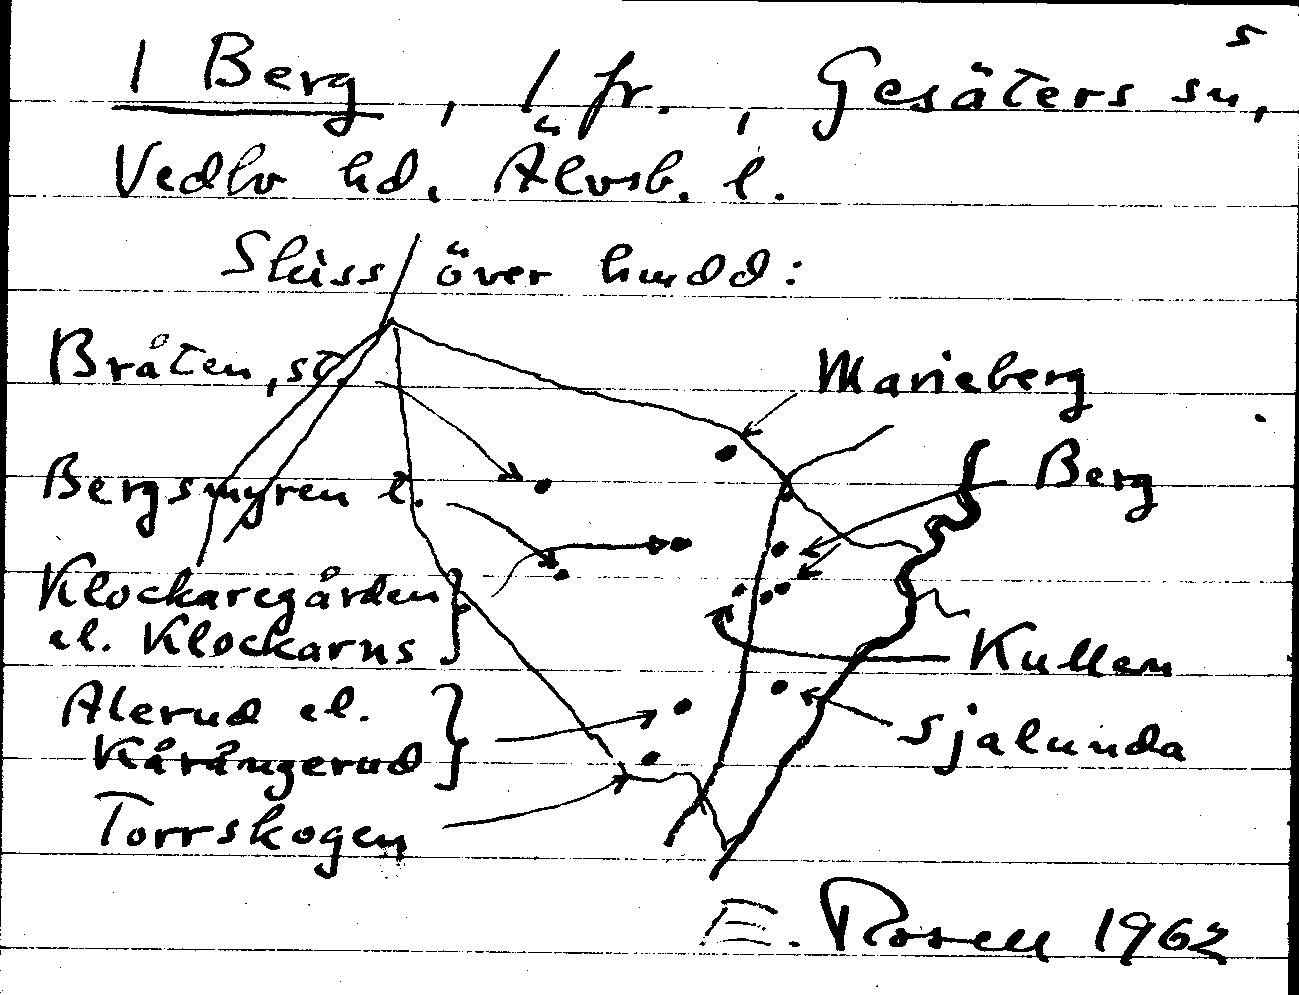 5
1 Berg, 1 fr., Gesäters sn,
Vedbo hd, Älvsb. l.
Skiss över hmdd:
Bråten, st.
Marieberg
Berg
Bergsmyren l.
Klockaregården
el. Klockarns
Kullen
Alerud el.
Sjalunda
Kårångerud
Torrskogen
E. Rosell 1962